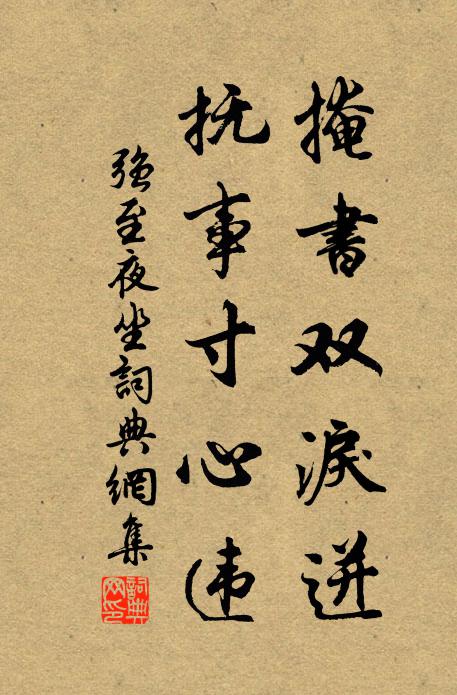 掩書双淚迸
抚事寸心违
强至夜坐詞典網集
詞典网印